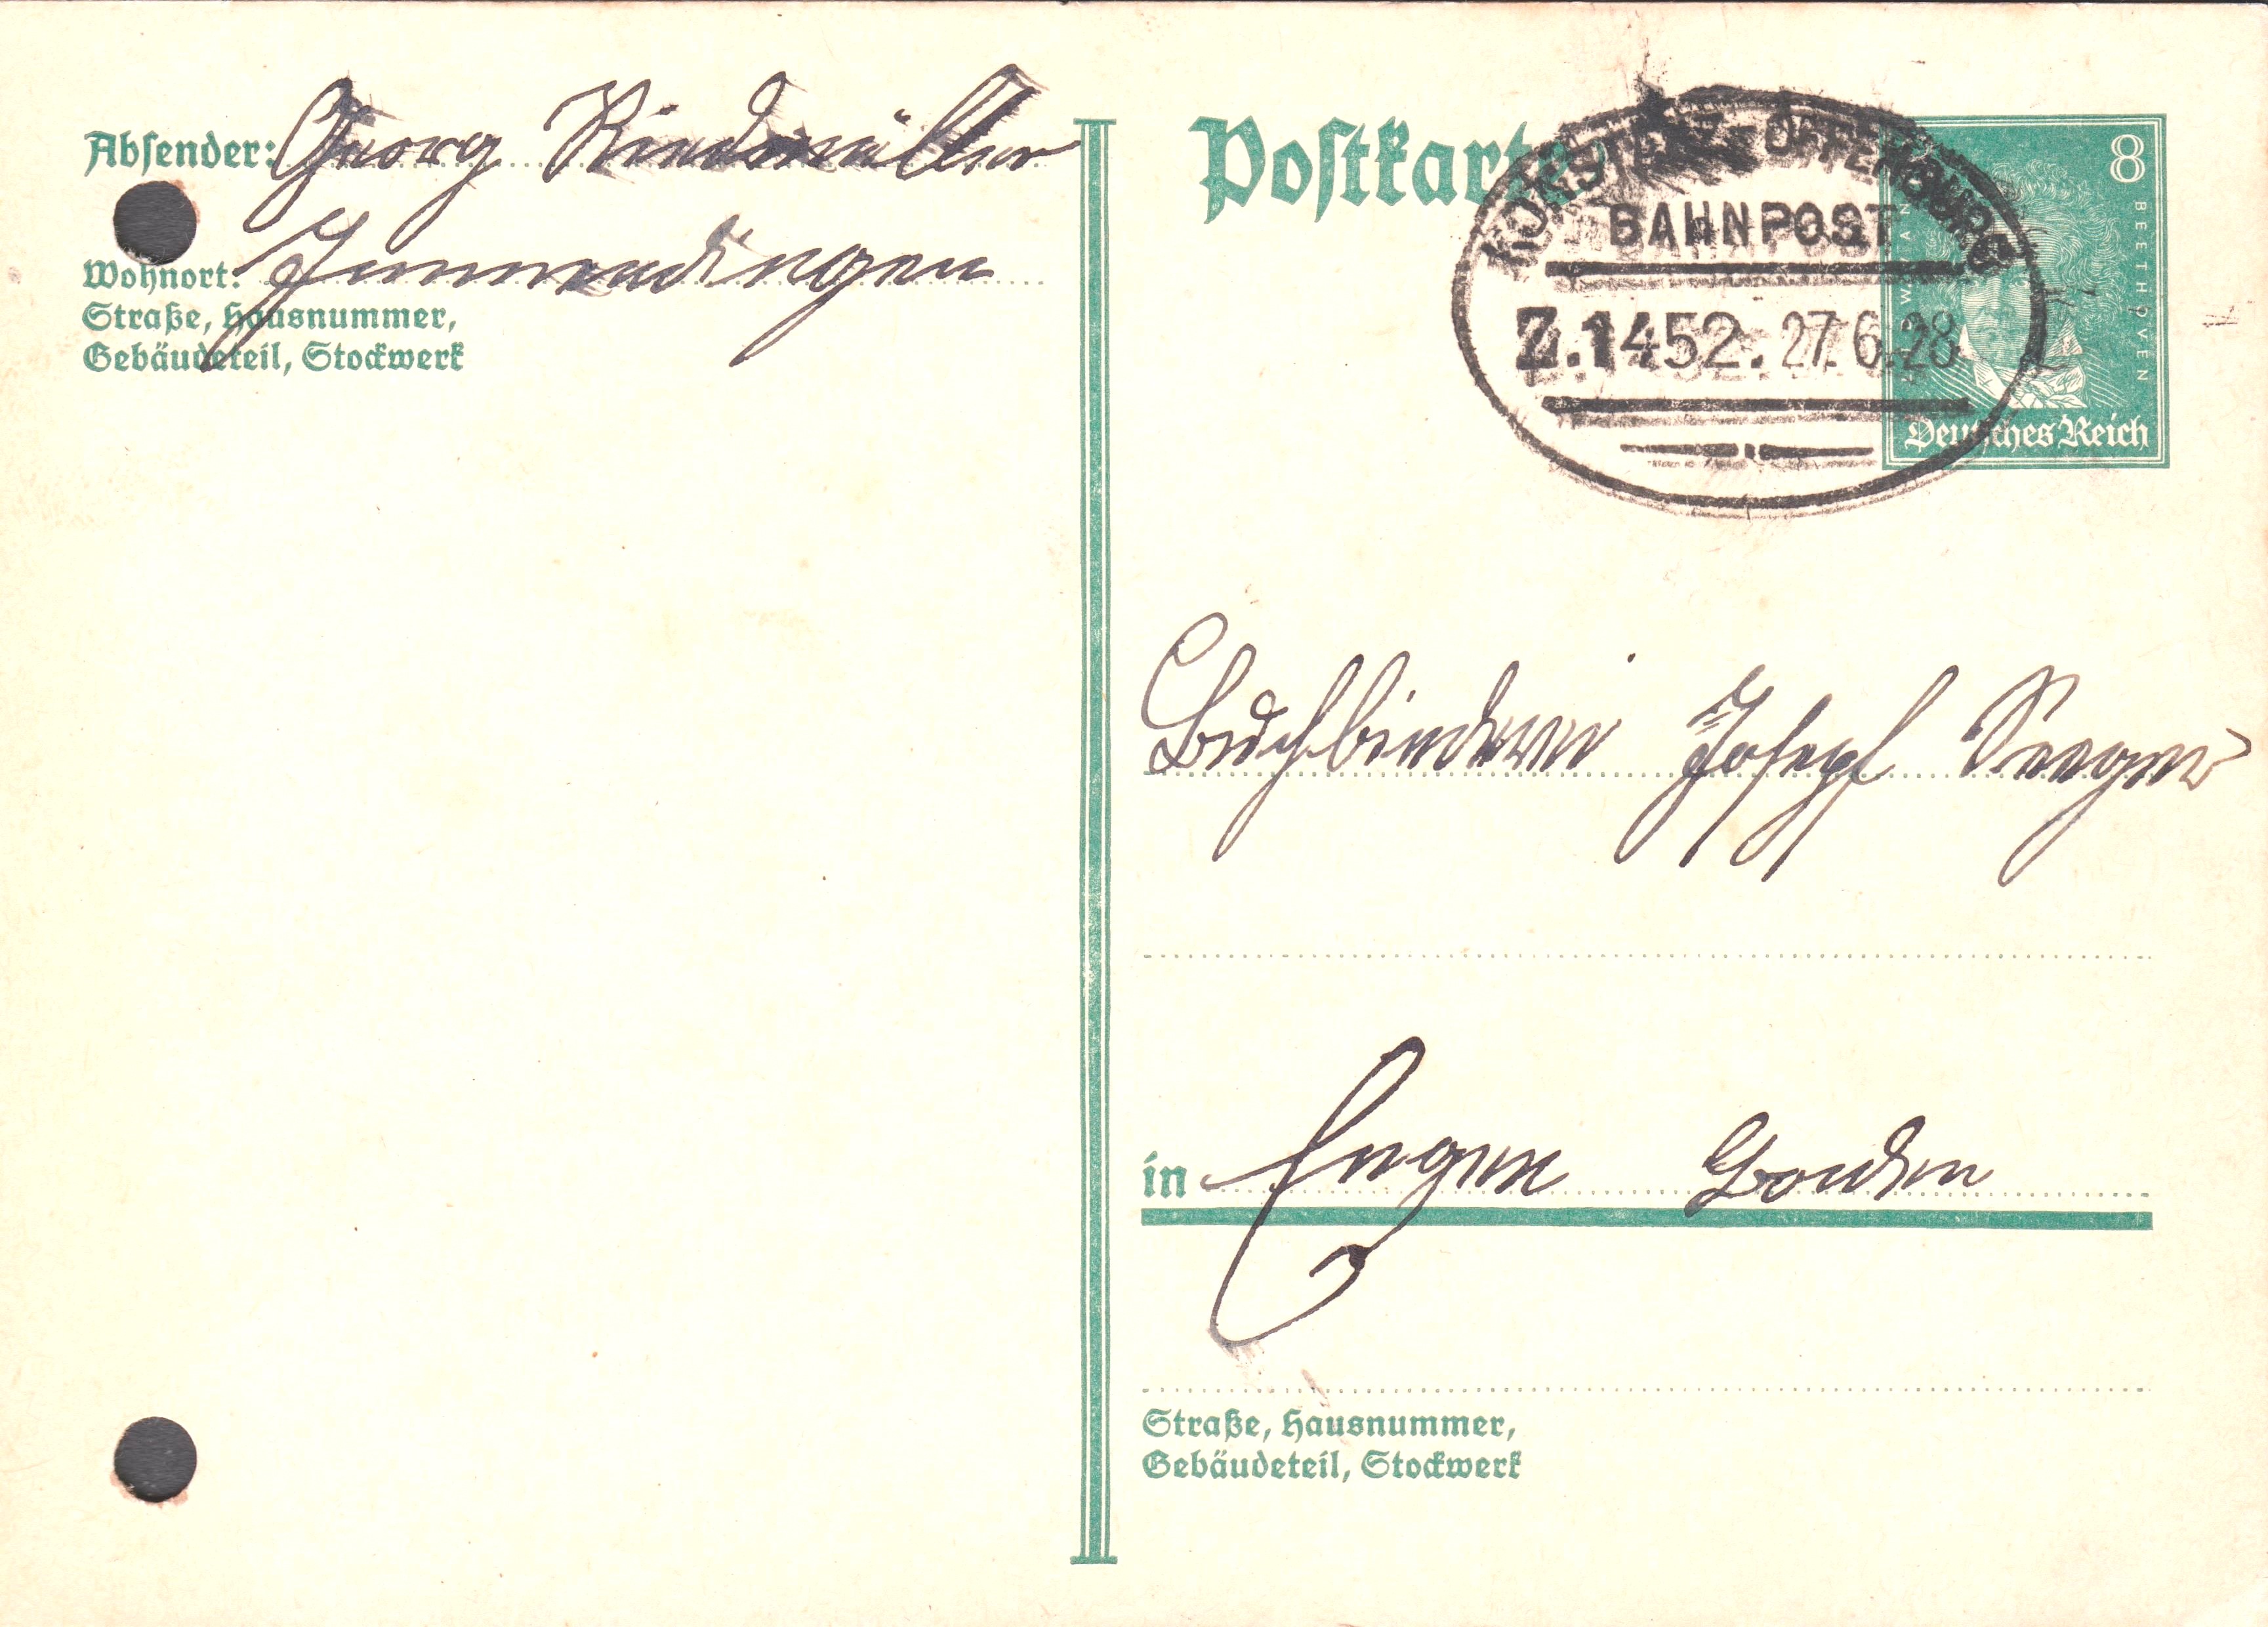 Absender: Georg Riedmüller
Wohnort: Immendingen
Straße, Hausnummer,
Gebäudeteil, Stockwerk
Postkarte
KONSTANZ - OFFENBURG
BAHNPOST
Z.1452. 27.6.28
8
BEETHOVEN
Deutsches Reich
Buchbinderei Josef Seeger
in Engen Baden
Straße, Hausnummer,
Gebäudeteil, Stockwerk